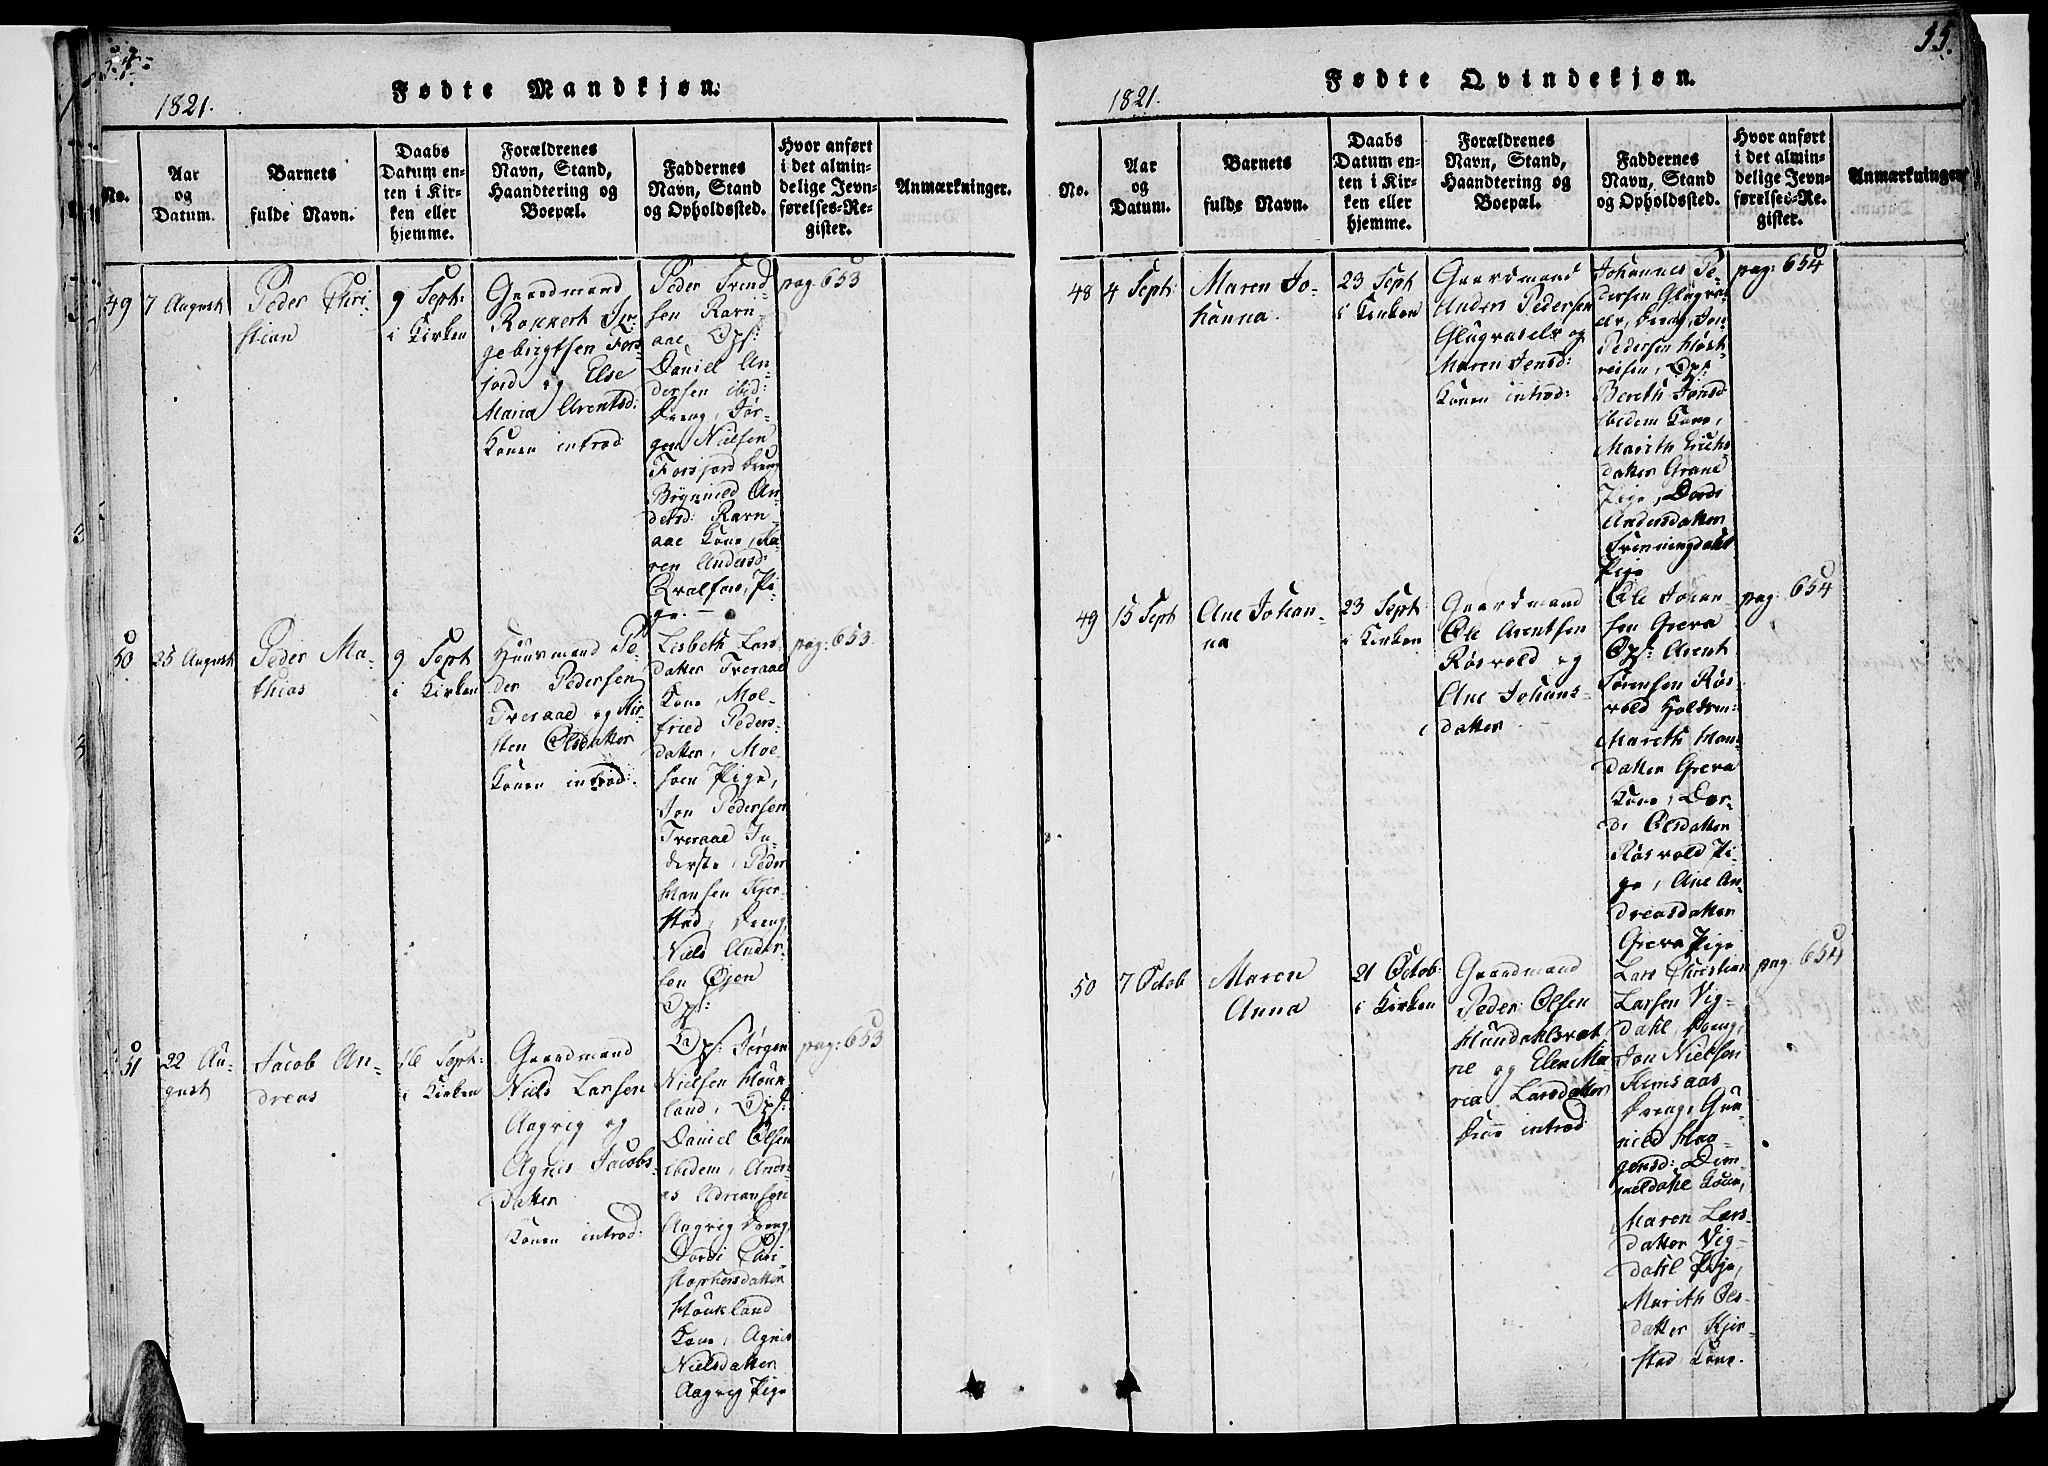 54.
Fødte Mandkjøn.
1821.
No.
Aar
og
Datum.
Barnets
fulde Navn.
Daabs
Datum en-
ten i Kir-
ken eller
hjemme.
Forældrenes
Navn, Stand,
Haandtering og
Boepæl.
Faddernes
Navn, Stand
og Opholdssted.
Hvor anført
i det almin-
delige Jevn-
førelses-Re-
gister.
Anmærkninger.
49
7 August
Peder Chri-
stian
9 Sept:
i Kirken
Gaardmand
Rokkert In-
gebrigtsen Fors-
jord og Else
Maria Arentsd:
Konen introd:
Peder Svend-
sen Ravn-
aae, Ops:
Daniel An-
dersen ibid:
Dreng, Jør-
gen Nielsen
Forsjord Dreng
Brynnild An-
dersd: Ravn-
aae Kone, Ka-
ren Andersd:
Qvalfors, Pi-
ge.
pag: 653
50
25 August
Peder Ma-
thias
9 Sept
i Kirken
Huusmand Pe-
der Pedersen
Tveraae og Kir-
sten Olsdatter
Konen introd:
Lisbeth Lars-
datter Tveraae
Kone, Moe-
fried Peders-
datter, Moe-
soen Pige,
Jon Pedersen
Tveraae In-
derste, Peder
Hansen Kjer-
stad, Dreng,
Niels Ander-
sen Øjen
Ops:
pag: 653.
51
22 Au-
gust
Jacob An-
dreas
16 Sept:
i Kirken
Gaardmand
Niels Larsen
Aagvig og
Agnis Jacobs-
datter
Konen introd:
Ops: Jørgen
Nielsen Houk-
land, Ops:
Daniel Olsen
ibidem, Andre-
as Adriansen
Aagvig Dreng,
Dordi Chri-
stophersdatter
Houkland
Kone, Agnis
Nielsdatter
Aagvig Pige
pag: 653
55.
Fødte Qvindekjøn.
1821.
No.
Aar
og
Datum.
Barnets
fulde Navn.
Daabs
Datum en-
ten i Kir-
ken eller
hjemme.
Forældrenes
Navn, Stand,
Haandtering og
Boepæl.
Faddernes
Navn, Stand
og Opholdssted.
Hvor anført
i det almin-
delige Jevn-
førelses-Re-
gister.
Anmærkninger.
48
4 Sept:
Maren Jo-
hanna.
23 Sept
i Kirken
Gaardmand
Anders Pedersen
Glugvaselv og
Maren Jensd:
Konen introd:
Johannes Pe-
dersen Glugvas-
elv, Dreng, Jon
Pedersen
Ops:
Bereth Jonsd:
ibidem Kone,
Marith Erichs-
datter Grane
Pige, Dordi
Andersdatter
Svenningdahl
Pige
pag: 654
49
15 Sept
Ane Johan-
na
23 Sept:
i Kirken
Gaardmand
Ole Arentsen
Røsvold og
Ane Johans-
datter
Ole Johan-
sen Greva
Ops: Arent
Sørensen Røs-
vold Holdsm:
Mareth Hans-
datter Greva
Kone, Dor-
di Olsdatter
Røsvold Pi-
ge, Ane An-
dreasdatter
Greva Pige
pag: 654
50
7 Octob
Maren
Anna
21 Octob:
i Kirken
Gaardmand
Peder Olsen
Hundahlsvat-
ne og Elen Ma-
ria Larsdatter
introd
Lars Christian
Larsen Vig-
dahl, Dreng,
Jon Nielsen
Remsaas
Dreng, Gun-
nild Haa-
gensd: Dem-
meldahl Kone,
Maren Lars-
datter Vig-
dahl Pige,
Marith Ols-
datter Kjer-
stad Kone.
pag: 654